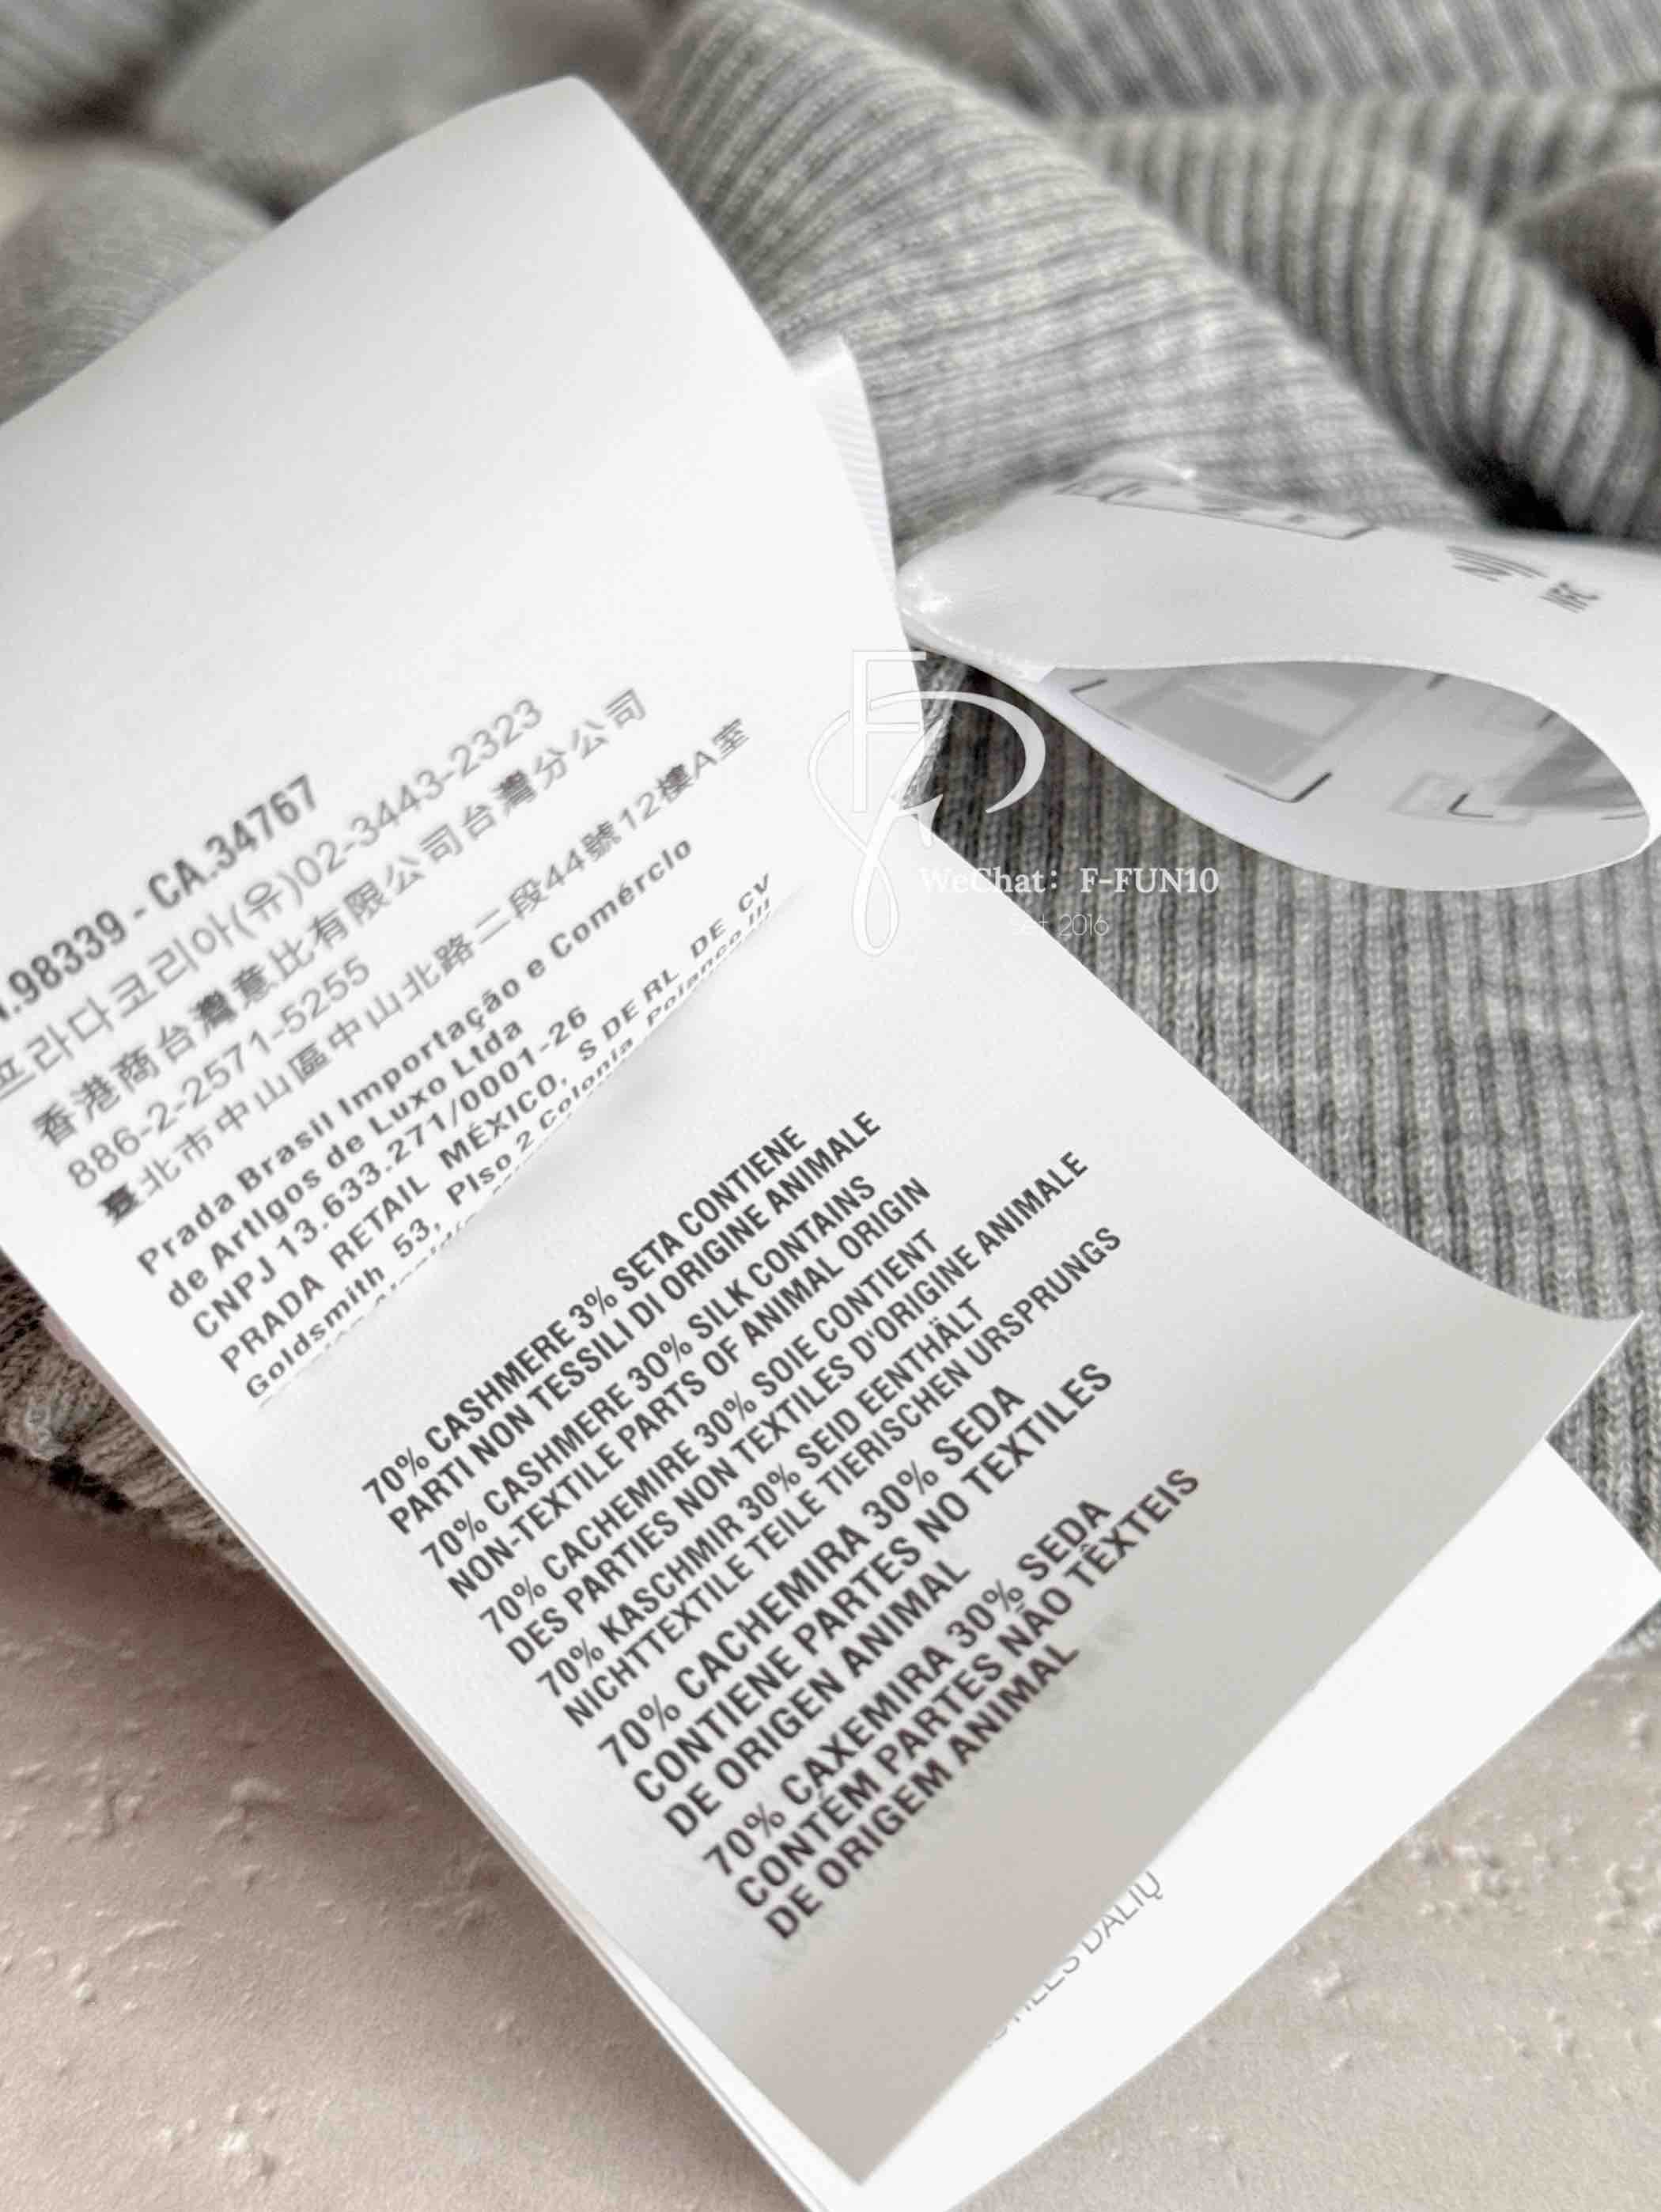 .98339 - CA.34767
프라다코리아(유)02-3443-2323
香港商台灣意比有限公司台灣分公司
886-2-2571-5255
臺北市中山區中山北路二段44號12樓A室
Prada Brasil Importação e Comércio
de Artigos de Luxo Ltda
CNPJ 13.633.271/0001-26
PRADA RETAIL MÉXICO, S DE RL DE CV
Goldsmith 53, Piso 2 Colonia Polanco III
70% CASHMERE 3% SETA CONTIENE
PARTI NON TESSILI DI ORIGINE ANIMALE
70% CASHMERE 30% SILK CONTAINS
NON-TEXTILE PARTS OF ANIMAL ORIGIN
70% CACHEMIRE 30% SOIE CONTIENT
DES PARTIES NON TEXTILES D'ORIGINE ANIMALE
70% KASCHMIR 30% SEID EENTHÄLT
NICHTTEXTILE TEILE TIERISCHEN URSPRUNGS
70% CACHEMIRA 30% SEDA
CONTIENE PARTES NO TEXTILES
DE ORIGEN ANIMAL
70% CAXEMIRA 30% SEDA
CONTÉM PARTES NÃO TÊXTEIS
DE ORIGEM ANIMAL
DALIŲ
NFC
WeChat: F-FUN10
Set 2016